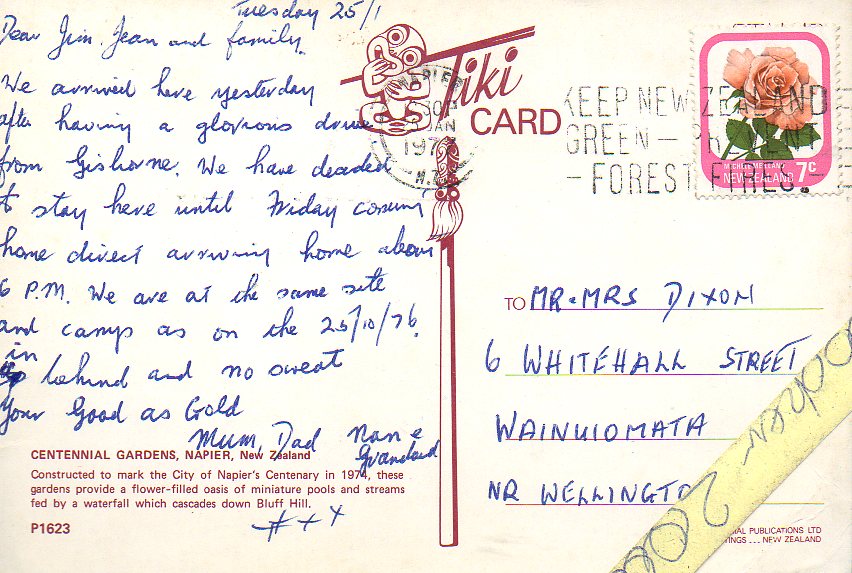 Tuesday 25/1
Dear Jim, Jean and family.
We arrived here yesterday
after having a glorious drive
from Gisborne. We have decided
to stay here until Friday coming
home direct arriving home about
6 P.M. We are at the same site
and camp as on the 25/10/76.
in behind and no sweat
Your Good as Gold
Mum, Dad Nan e
Grandad
CENTENNIAL GARDENS, NAPIER, New Zealand
Constructed to mark the City of Napier's Centenary in 1974, these
gardens provide a flower-filled oasis of miniature pools and streams
fed by a waterfall which cascades down Bluff Hill.
P1623
Tiki
CARD
NAPIER
JAN
197
N.Z.
KEEP NEW ZEALAND
GREEN — PREVENT
— FOREST FIRES.
NEW ZEALAND 7c
TO MR & MRS DIXON
6 WHITEHALL STREET
WAINUIOMATA
NR WELLINGTO
AL PUBLICATIONS LTD
TINGS ... NEW ZEALAND